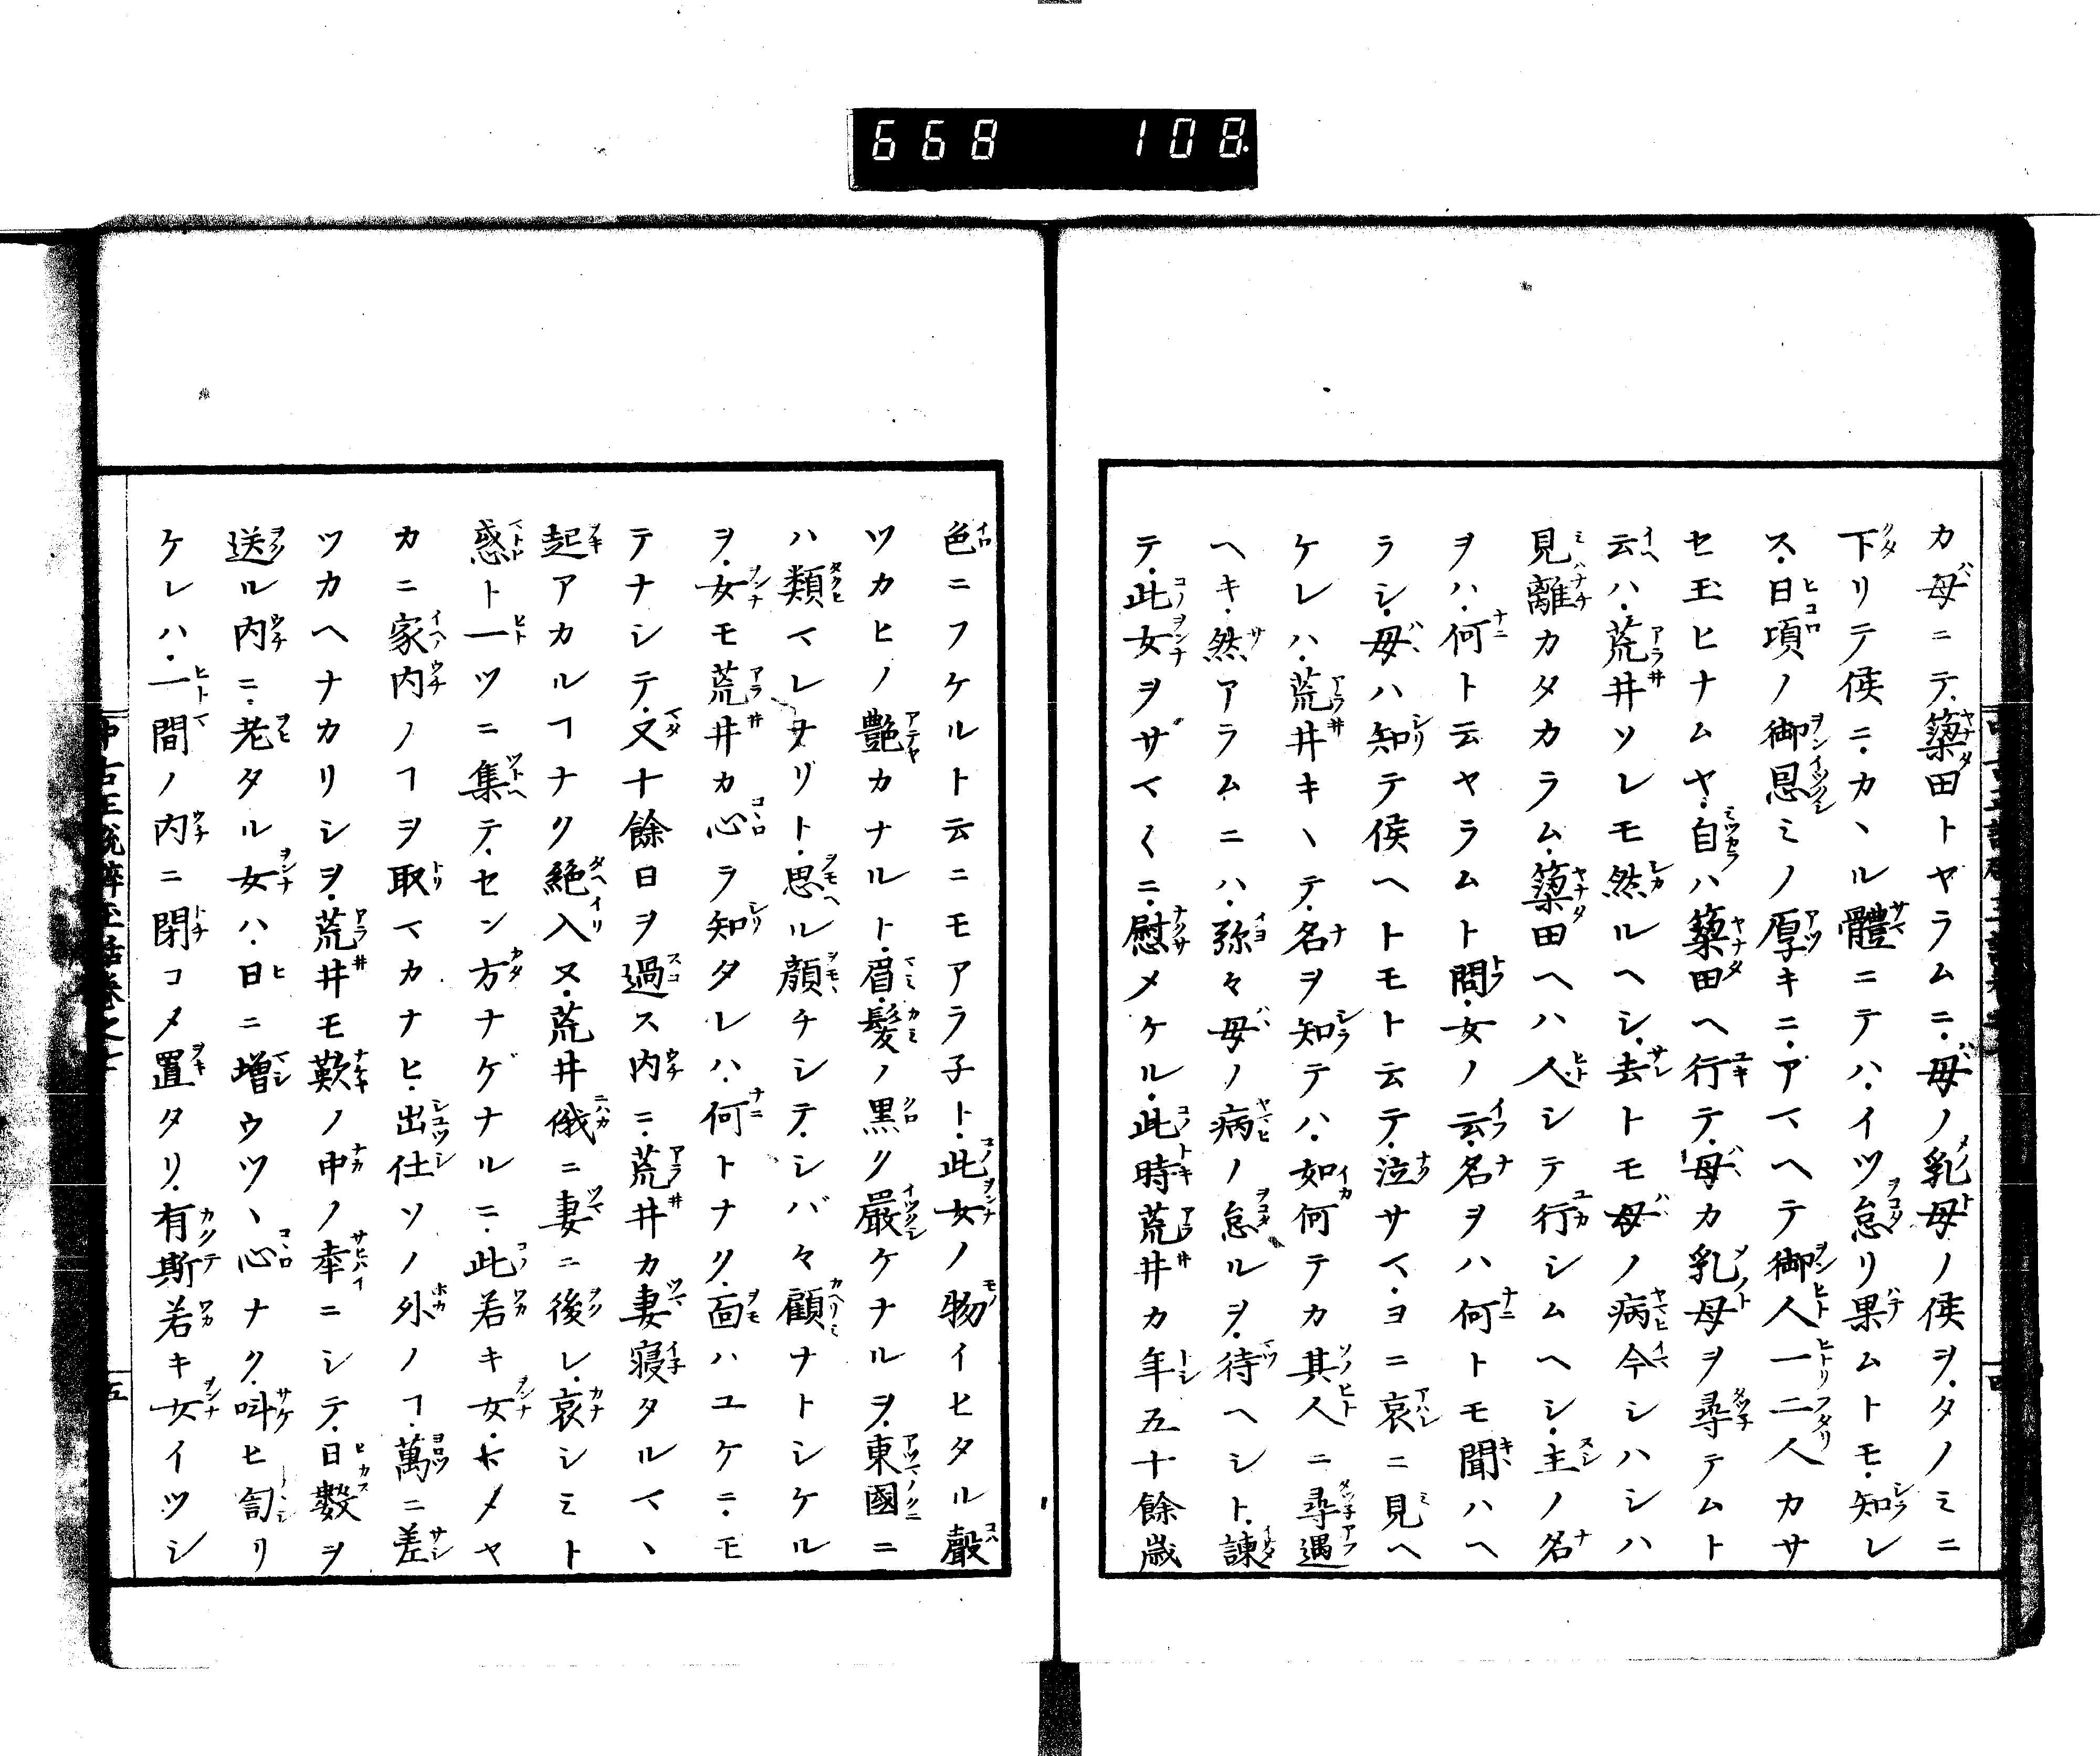 668 108
カ母ニテ、簗田トヤラムニ、母ノ乳母ノ侯ヲ、タノミニ
下リテ侯ニ、カヽル體ニテハ、イツ怠リ果ムトモ、知レ
ス、日項ノ御恩ミノ厚キニ、アマヘテ御人一二人カサ
セ玉ヒナムヤ、自ハ簗田ヘ行テ、母カ乳母ヲ尋テムト
云ハ、荒井ソレモ然ルヘシ、去トモ母ノ病今シハシハ
見離カタカラム、簗田ヘハ人シテ行シムヘシ、主ノ名
ヲハ、何ト云ヤラムト問、女ノ云、名ヲハ何トモ聞ハヘ
ラシ、母ハ知テ侯ヘトモト云テ、泣サマ、ヨニ哀ニ見ヘ
ケレハ、荒井キヽテ、名ヲ知テハ、如何テカ其人ニ尋遇
ヘキ、然アラムニハ、弥々母ノ病ノ怠ルヲ、待ヘシト、諌
テ、此女ヲサマ〱ニ、慰メケル、此時荒井カ年五十餘歳
色ニフケルト云ニモアラ子ト、此女ノ物イヒタル聲
ツカヒノ艶カナルト、眉、髪ノ黒ク嚴ケナルヲ、東國ニ
ハ類マレナリト、思ヘル顔チシテ、シバ々顧ナトシケル
ヲ、女モ荒井カ心ラ知タレハ、何トナク、面ハユケニ、モ
テナシテ、又十餘日ヲ過ス内ニ、荒井カ妻寝タルマヽ
起アカルヿナク絶入ヌ、荒井俄ニ妻ニ後レ、哀シミト
惑ト一ツニ集テ、セン方ナゲナルニ、此若キ女、トメヤ
カニ家内ノヿヲ取マカナヒ、出仕ソノ外ノヿ、萬ニ差
ツカヘナカリシヲ、荒井モ歎ノ中ノ幸ニシテ、日數ヲ
送ル内ニ、老タル女ハ、日ニ増ウツヽ心ナク、叫ヒ訇リ
ケレハ、一間ノ内ニ閉コメ置タリ、有斯若キ女イツシ
五